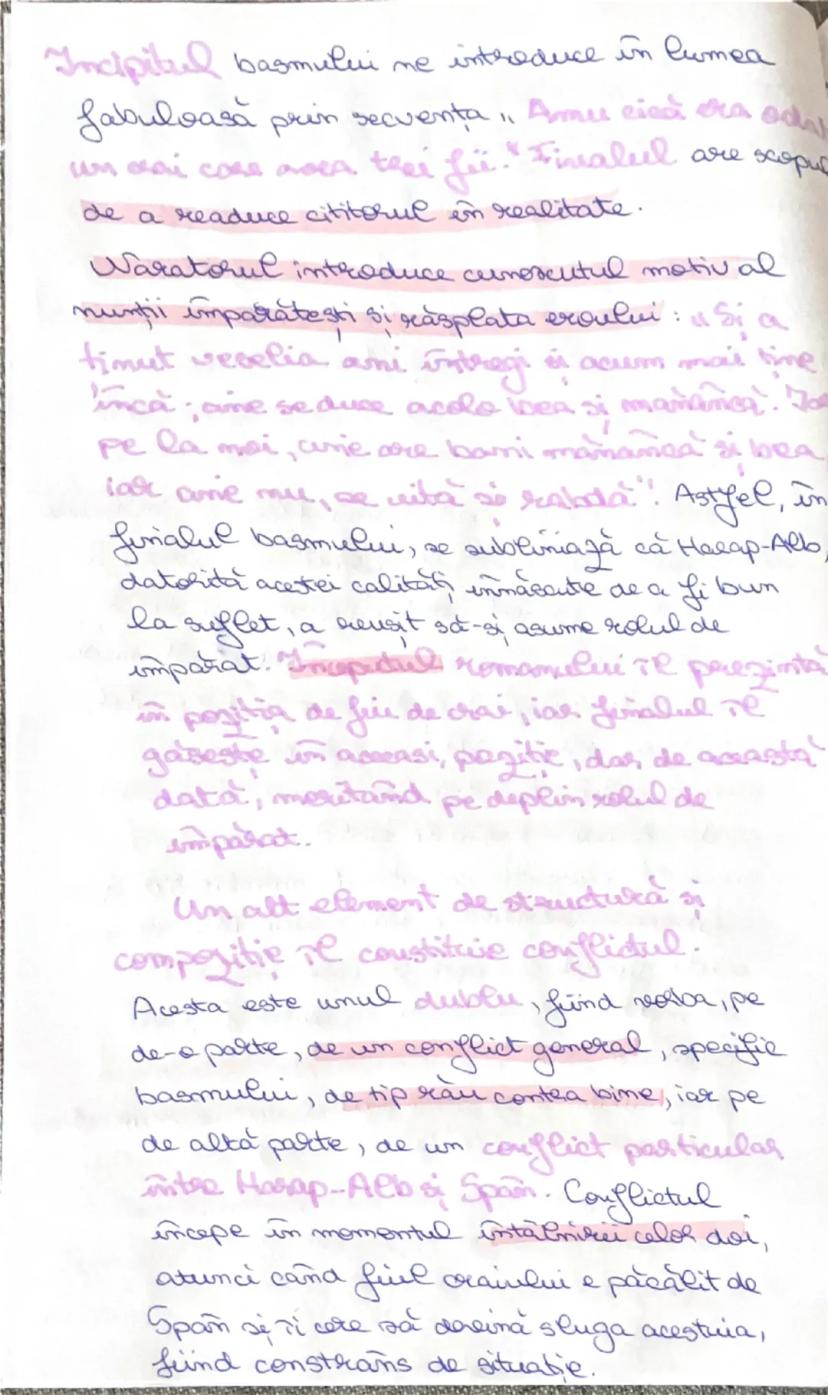 Incipitul basmului ne introduce în lumea
fabuloasă prin secvența „Amu cică era odat
un crai care avea trei fii." Finalul are scopul
de a readuce cititorul în realitate.
Naratorul introduce cunoscutul motiv al
nunții împărătești și răsplata eroului: „Și a
ținut veselia ani întregi și acum mai ține
încă; cine se duce acolo bea și mănâncă. Iar
pe la noi, cine are bani mănâncă și bea,
iar cine nu, se uită și rabdă"! Astfel, în
finalul basmului, se subliniază că Harap-Alb,
datorită acestei calități înnăscute de a fi bun
la suflet, a reușit să-și asume rolul de
împărat. Începutul romanului îl prezintă
în poziția de fiu de crai, iar finalul îl
găsește în aceeași poziție, dar, de această
dată, meritând pe deplin rolul de
împărat.
Un alt element de structură și
compoziție îl constituie conflictul.
Acesta este unul dublu, fiind vorba, pe
de-o parte, de un conflict general, specific
basmului, de tip rău contra bine, iar pe
de altă parte, de un conflict particular
între Harap-Alb și Spân. Conflictul
începe în momentul întâlnirii celor doi,
atunci când fiul craiului e păcălit de
Spân și îi cere să devină sluga acestuia,
fiind constrâns de situație.